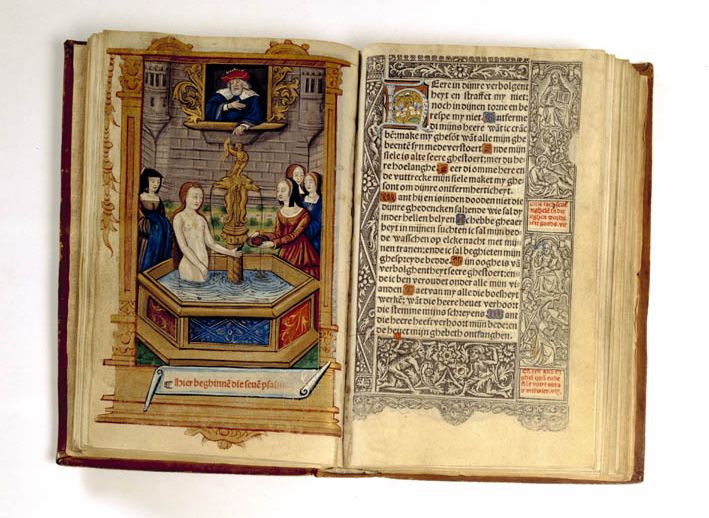 Hier beghinnē die seuē psalm
Heere in dijnre verbolgent
heyt en straffet my niet:
noch in dijnen torne en be
respe my niet. Ontferme
di mijns heere wāt ic crāc
bē: make my ghesōt wāt alle mijn ghe
beente sijn mede verstoert. Ende mijn
siele is alte seere ghestoert: mer du he
re hoe langhe. Keer di omme here en
de vuttrecke mijn siele maket my ghe
sont om dijnre ontfermherticheyt.
Want hij en is inden dooden niet die
dijns ghedencken sal: ende wie sal dy
inder hellen belyen. Ic hebbe ghearbeyt
in mijnen suchten ic sal mijn bed
de wasschen op elcke nacht met mij
nen tranen: ende ic sal beghieten mijn
ghespreyde bedde. Mijn ooghe is vā
verbolghentheyt seere ghestoert: en
de ic ben veroudet onder alle mijn vi
anden. Gaet van my alle die boosheyt
werket: wāt die heere heuet verhoort
die stemme mijns schreyens. Want
die heere heeft verhoort mijn bede: en
de heuet mijn ghebeth ontfanghen.